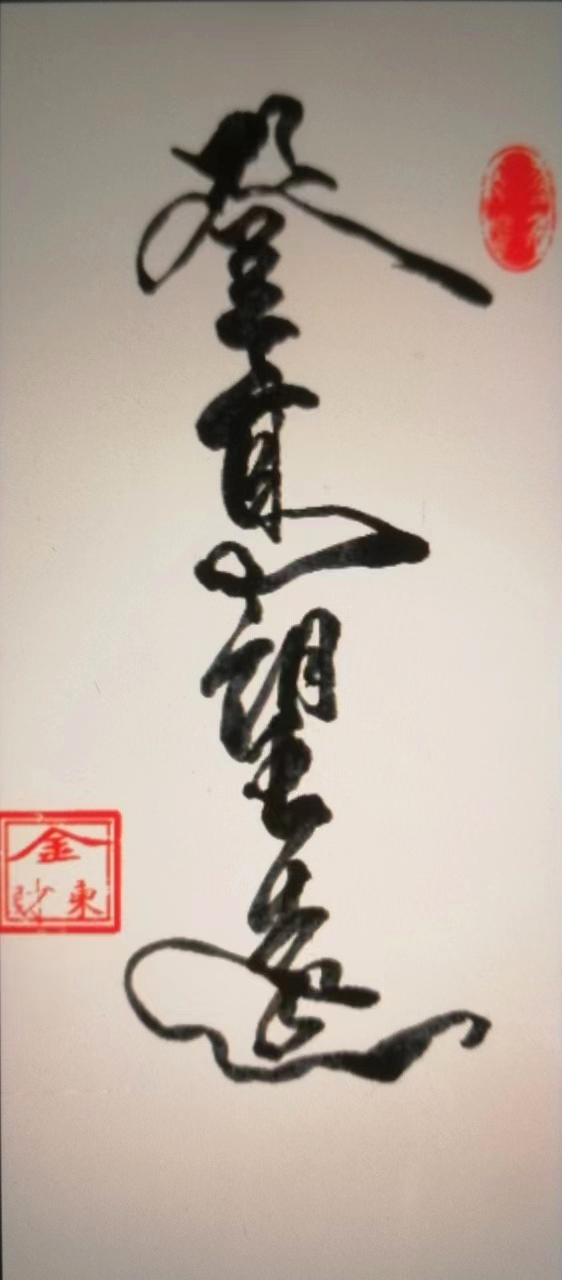 登高望远
金
东